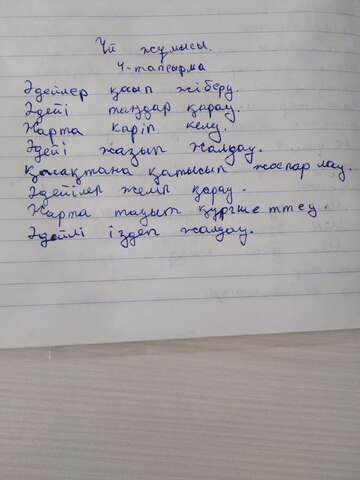 Үй жұмысы.
4-тапсырма
Әдейлер қсып жіберу.
Әдейі таңдар қарау.
Карта кәріп келу.
Әдейі жазып жалдау.
қатысып жоспарлау.
Әдейілеп желіп қарау.
Карта тазып
Әдейлі іздеп жалдау.